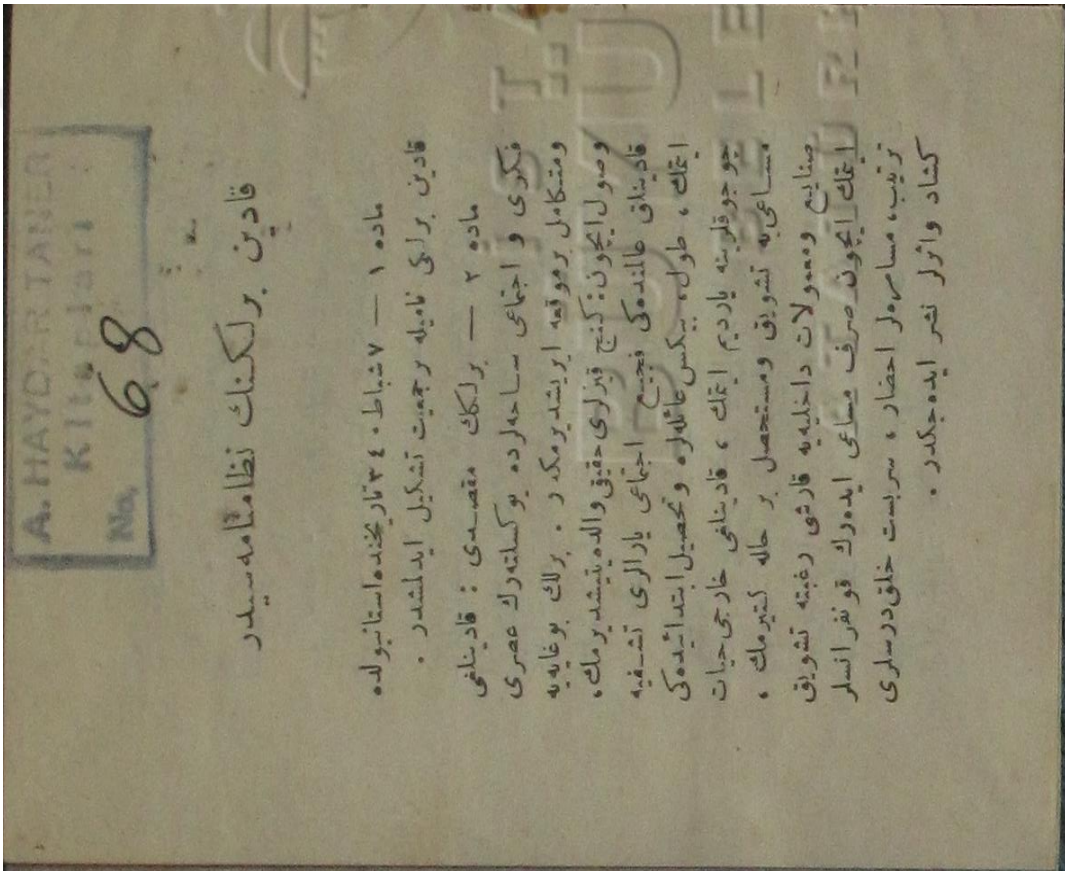 A. HAYDAR TANER
Kitapları
No. 68
قادین برلكنك نظامنامه‌سیدر
ماده ١ — ٧ شباط ٣٤٠ تاریخنده استانبولده
قادین برلكی نامیله برجمعیت تشكیل ایدلمشدر .
ماده ٢ — برلكك مقصدی : قادینلغی
فكری و اجتماعی ساحه‌لرده یوكسلته‌رك عصری
ومتكامل برموقعه ایریشدیرمكدر . برلك بوغایه‌یه
وصول ایچون : كنج قیزلری حقیقی والده یتیشدیرمك،
قادینلق عالمنده‌كی فجیع اجتماعی یارالری تشفیه
ایتمك ، طول ، بیكس عائله‌لره و تحصیل ابتدائیده‌كی
چوجوقلرینه یاردیم ایتمك ، قادینلغی خارجی حیات
مساعی‌یه تشویق ومستحصل بر حاله كتیرمك ،
صنایع ومعمولات داخلیه‌یه قارشی رغبته تشویق
ایتمك ایچون صرف مساعی ایده‌رك قونفرانسلر
ترتیب، مسامره‌لر احضار ، سربست خلق درسلری
كشاد واثرلر نشر ایده‌جكدر .